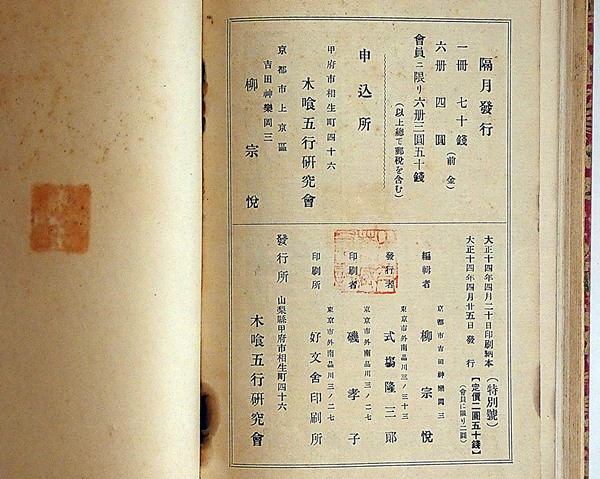 隔月發行
一冊 七十錢 (前金)
六册 四圓
會員ニ限リ六册三圓五十錢
(以上總て郵税を含む)
申込所
甲府市相生町四十六
木喰五行研究會
京都市上京區
吉田神樂岡三
柳宗悅
大正十四年四月二十日印刷納本
大正十四年四月廿五日發行
(特別號)
【定價二圓五十錢】
(會員に限り二圓)
京都市吉田神樂岡三
編輯者 柳宗悅
東京市外南品川三ノ三十三
發行者 式場隆三郎
東京市外南品川三ノ二七
印刷者 磯孝子
東京市外南品川三ノ二七
印刷所 好文舍印刷所
發行所 山梨縣甲府市相生町四十六
木喰五行研究會